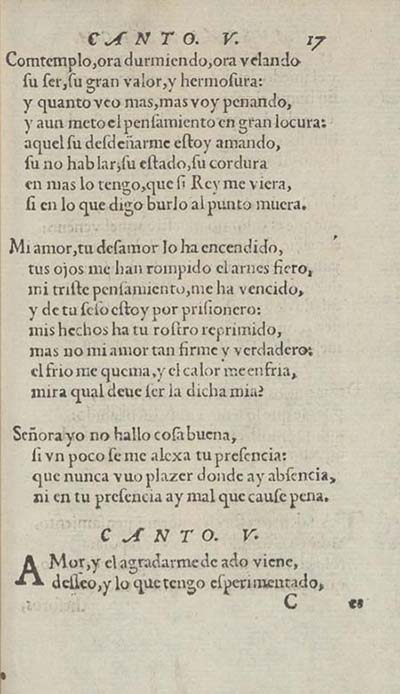 CANTO. V. 17
Comtemplo, ora durmiendo, ora velando
su ser, su gran valor, y hermosura:
y quanto veo mas, mas voy penando,
y aun meto el pensamiento en gran locura:
aquel su desdeñarme estoy amando,
su no hablar; su estado, su cordura
en mas lo tengo, que si Rey me viera,
si en lo que digo burlo al punto muera.
Mi amor, tu desamor lo ha encendido,
tus ojos me han rompido el arnes fiero,
mi triste pensamiento, me ha vencido,
y de tu seso estoy por prisionero:
mis hechos ha tu rostro reprimido,
mas no mi amor tan firme y verdadero:
el frio me quema, y el calor me enfria,
mira qual deue ser la dicha mia?
Señora yo no hallo cosa buena,
si vn poco se me alexa tu presencia:
que nunca vuo plazer donde ay absencia,
ni en tu presencia ay mal que cause pena.
CANTO. V.
AMor, y el agradarme de ado viene,
desseo, y lo que tengo esperimentado,
C es